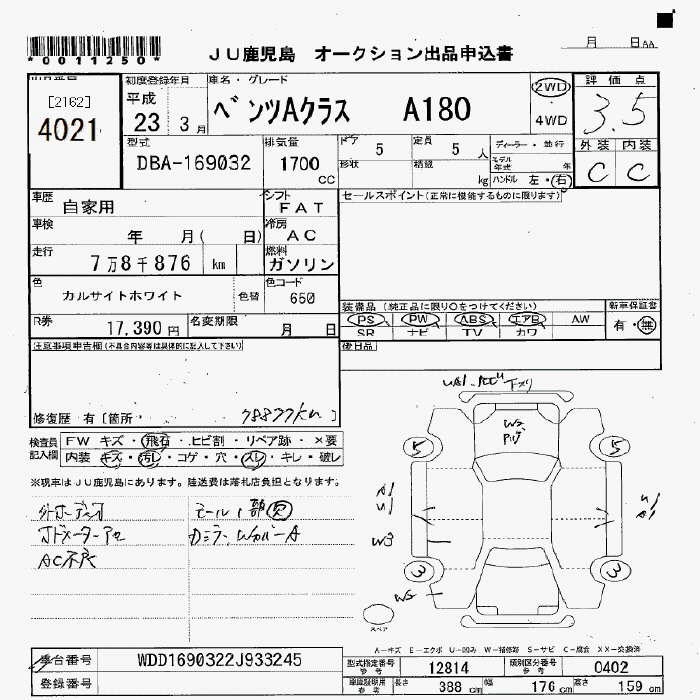 *0011250*
JU鹿児島 オークション出品申込書
月 日 AA
[2162]
4021
初度登録年月
平成
23 3月
車名・グレード
ベンツAクラス A180
2WD
・
4WD
評価点
3.5
型式
DBA-169032
排気量
1700 CC
ドア 5
定員 5 人
形状
積載 kg
ディーラー・並行
モデル年式 年
ハンドル 左・右
外装 内装
C C
車歴 自家用
シフト FAT
セールスポイント(正常に機能するものに限ります)
車検 年 月( 日)
冷房 AC
走行 7万8千876 km
燃料 ガソリン
色 カルサイトホワイト 色替
色コード 650
装備品(純正品に限り〇をつけてください)
新車保証書
PS PW ABS エアB AW
SR ナビ TV カワ
有・無
R券 17,390円
名変期限 月 日
後日品
注意事項申告欄(不具合内容等は具体的に記入して下さい)
修復歴 有[箇所・ ]
78877km
検査員記入欄
FW キズ・飛石・ヒビ割・リペア跡・×要
内装 キズ・汚レ・コゲ・穴・スレ・キレ・破レ
※現車はJU鹿児島にあります。陸送費は落札店負担となります。
モール1部欠
AC不良
5 5
A1
U1
W3
3 3
スペア
A-キズ E-エクボ U-凹ミ W-補修跡 S-サビ C-腐食 XX-交換済
車台番号 WDD1690322J933245
登録番号
型式指定番号 12814
類別区分番号 0402
長さ 388 cm
幅 176 cm
高さ 159 cm